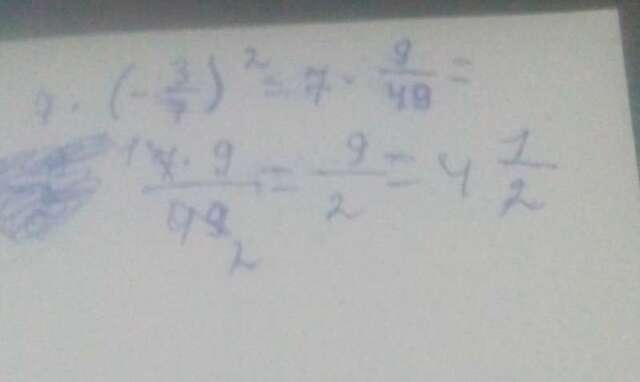 7 · (-3/7)² = 7 · 9/49 =
17 · 9/49 2 = 9/2 = 4 1/2